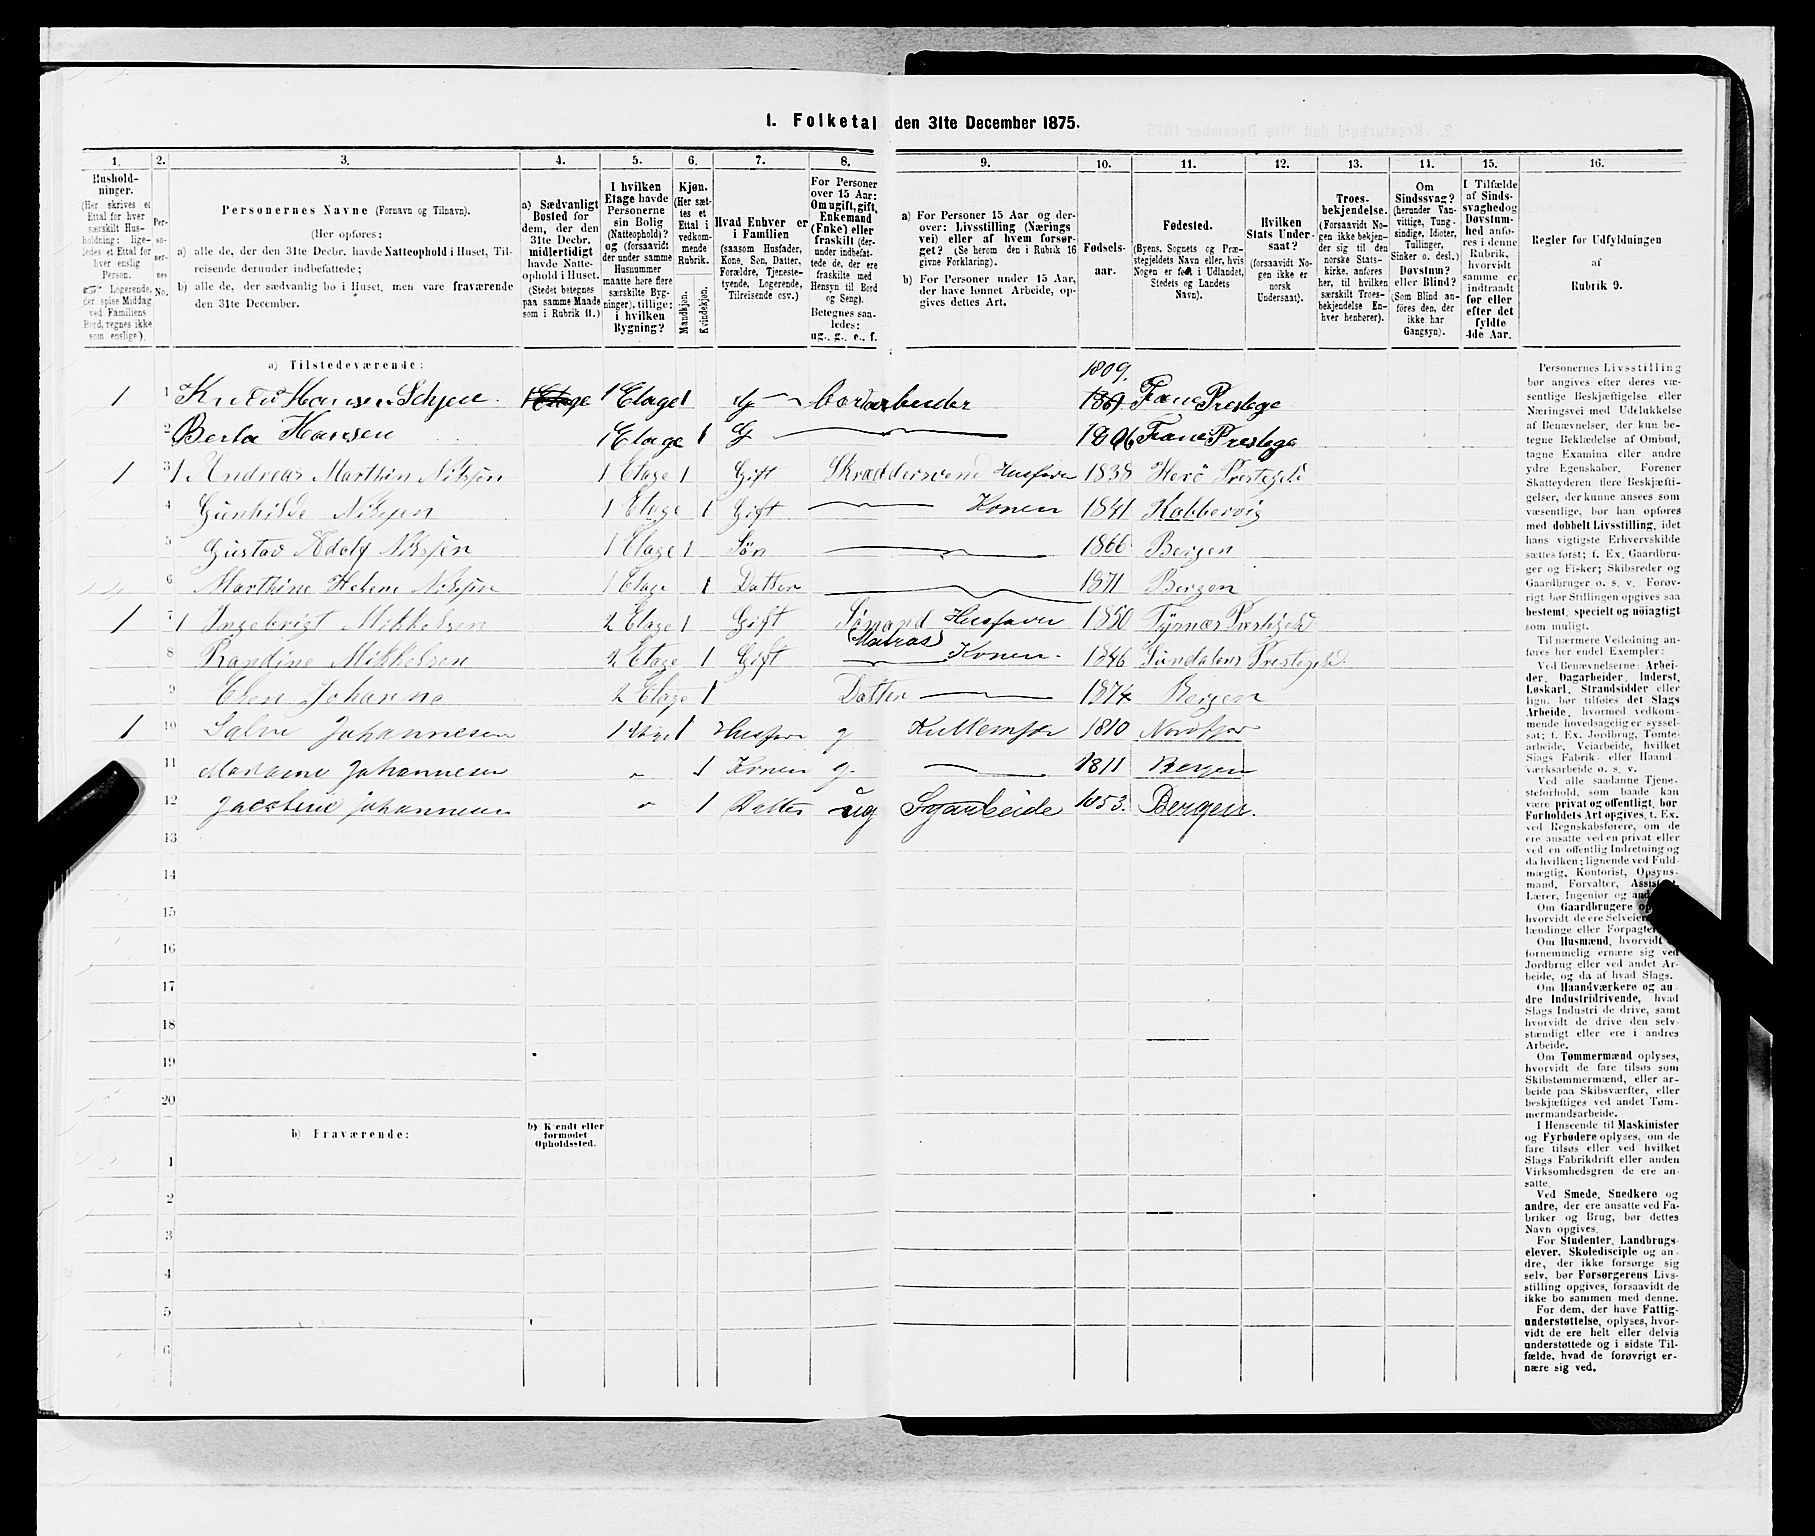 1. Folketal den 31te December 1875.
1. 2. 3. 4. 5. 6. 7. 8. 9. 10. 11. 12. 13. 14. 15. 16.
Husholdninger. (Her skrives et Ettal for hver særskilt Husholdning; ligeledes et Ettal for hver enslig Person. ☞ Logerende, der spise Middag ved Familiens Bord, regnes ikke som enslige).
Personernes No.
Personernes Navne (Fornavn og Tilnavn).
(Her opføres:
a) alle de, der den 31te Decbr. havde Natteophold i Huset, Tilreisende derunder indbefattede;
b) alle de, der sædvanlig bo i Huset, men vare fraværende den 31te December.
a) Sædvanligt Bosted for dem, der den 31te Decbr. midlertidigt havde Natteophold i Huset. (Stedet betegnes paa samme Maade som i Rubrik 11.)
I hvilken Etage havde Personerne sin Bolig (Natteophold)? og (forsaavidt der under samme Husnummer maatte høre flere særskilte Bygninger), tillige: i hvilken Bygning?
Kjøn. (Her sættes et Ettal i vedkommende Rubrik.
Mandkjøn. Kvindekjøn.
Hvad Enhver er i Familien (saasom Husfader, Kone, Søn, Datter, Forældre, Tjenestetyende, Logerende, Tilreisende osv.)
For Personer over 15 Aar: Om ugift, gift, Enkemand (Enke) eller fraskilt (derunder indbefattede de, der ere fraskilte med Hensyn til Bord og Seng). Betegnes saaledes: ug., g., e., f.
a) For Personer 15 Aar og derover: Livsstilling (Nærings vei) eller af hvem forsørget? (Se herom den i Rubrik 16 givne Forklaring).
b) For Personer under 15 Aar, der have lønnet Arbeide, opgives dettes Art.
Fødselsaar.
Fødested. (Byens, Sognets og Præstegjeldets Navn eller, hvis Nogen er født i Udlandet, Stedets og Landets Navn).
Hvilken Stats Undersaat? (forsaavidt Nogen ikke er norsk Undersaat).
Troesbekjendelse. (Forsaavidt Nogen ikke bekjender sig til den norske Statskirke, anføres her, til hvilken særskilt Troesbekjendelse Enhver henhører).
Om Sindssvag? (herunder Vanvittige, Tungsindige, Idioter, Tullinger, Sinker o. desl.) Døvstum? eller Blind? (Som Blind anføres den, der ikke har Gangsyn).
I Tilfælde af Sindssvaghed og Døvstumhed anføres i denne Rubrik, hvorvidt samme er indtraadt før eller efter det fyldte 4de Aar.
Regler for Udfyldningen af Rubrik 9.
a) Tilstedeværende:
1809.
1 1 Knud Hansen 1 Etage 1 Etage 1 g 1809 Fane Prestege
2 Berta Hansen 1 Etage 1 G 1806 Fane Prestege
1 3 1 Andreas Marthin Nilsen 1 Etage 1 Gift Skræddersvend Husfader 1838 Herø Prestegjeld
4 Gunhilde Nilsen 1 Etage 1 Gift Konen 1841
5 Gustav Adolf Nilsen 1 Etage 1 Søn 1866 Bergen
6 Marthine Helene Nilsen 1 Etage 1 Datter 1871 Bergen
1 7 1 Ingebrigt Mikkelsen 2 Etage 1 Gift Sømand Husfader 1850 Tysnæs Prestegjeld
(Matros)
8 Randine Mikkelsen 2 Etage 1 Gift Konen 1846 Sundalens Prestegjeld
9 Johanne 2 Etage 1 Datter 1874 Bergen
1 10 Johannesen 1 Etage 1 Husfar g 1810 Nordfjor
11 Madame Johannesen " 1 Konen g. 1811 Bergen
12 Jacobine Johannesen " 1 Datter ug Syarbeide 1853. Bergen.
13
14
15
16
17
18
19
20
b) Fraværende: b) Kjendt eller formodet Opholdssted.
1
2
3
4
5
6
Personernes Livsstilling
bør angives efter deres væsentlige Beskjæftigelse eller
Næringsvei med Udelukkelse
af Benævnelser, der kun betegne Beklædelse af Ombud,
tagne Examina eller andre
ydre Egenskaber. Forener
Skatteyderen flere Beskjæftigelser, der kunne ansees som
væsentlige, bør han opføres
med dobbelt Livsstilling, idet
hans vigtigste Erhvervskilde
sættes først; f. Ex. Gaardbruger og Fisker; Skibsreder og
Gaardbruger o. s. v. Forøvrigt bør Stillingen opgives saa
bestemt, specielt og nøiagtigt
som muligt.
Til nærmere Veiledning anføres her endel Exempler:
Ved Benævnelserne: Arbeider, Dagarbeider, Inderst,
Løskarl, Strandsidder eller
lign. bør tilføies det Slags
Arbeide, hvormed vedkommende hovedsagelig er sysselsat; f. Ex. Jordbrug, Tomtearbeide, Veiarbeide, hvilket
Slags Fabrik- eller Haandværksarbeide o. s. v.
Ved alle saadanne Tjenesteforhold, som baade kan
være privat og offentligt, bør
Forholdets Art opgives, t. Ex.
ved Regnskabsførere, om de
ere ansatte ved en privat eller
ved en offentlig Indretning og
da hvilken; lignende ved Fuldmægtig, Kontorist, Opsynsmand, Forvalter, Assistent,
Lærer, Ingeniør og andre.
Om Gaardbrugere
hvorvidt de ere Selveiere,
lændinge eller Forpagtere.
Om Husmænd, hvorvidt
fornemmelig ernære sig ved
Jordbrug eller ved andet Arbeide, og da af hvad Slags.
Om Haandværkere og andre Industridrivende, hvad
Slags Industri de drive, samt
hvorvidt de drive den selvstændigt eller ere i andres
Arbeide.
Om Tømmermænd oplyses,
hvorvidt de fare tilsøs som
Skibstømmermænd, eller arbeide paa Skibsværfter, eller
beskjæftiges ved andet Tømmermandsarbeide.
I Henseende til Maskinister
og Fyrbødere oplyses, om de
fare tilsøs eller ved hvilket
Slags Fabrikdrift eller anden
Virksomhedsgren de ere ansatte.
Ved Smede, Snedkere og
andre, der ere ansatte ved Fabriker og Brug, bør dettes
Navn opgives.
For Studenter, Landbrugselever, Skoledisciple og andre, der ikke forsørge sig
selv, bør Forsørgerens Livsstilling opgives, forsaavidt de
ikke bo sammen med denne.
For dem, der have Fattigunderstøttelse, oplyses, hvorvidt de ere helt eller delvis
understøttede og i sidste Tilfælde, hvad de forøvrigt ernære sig ved.